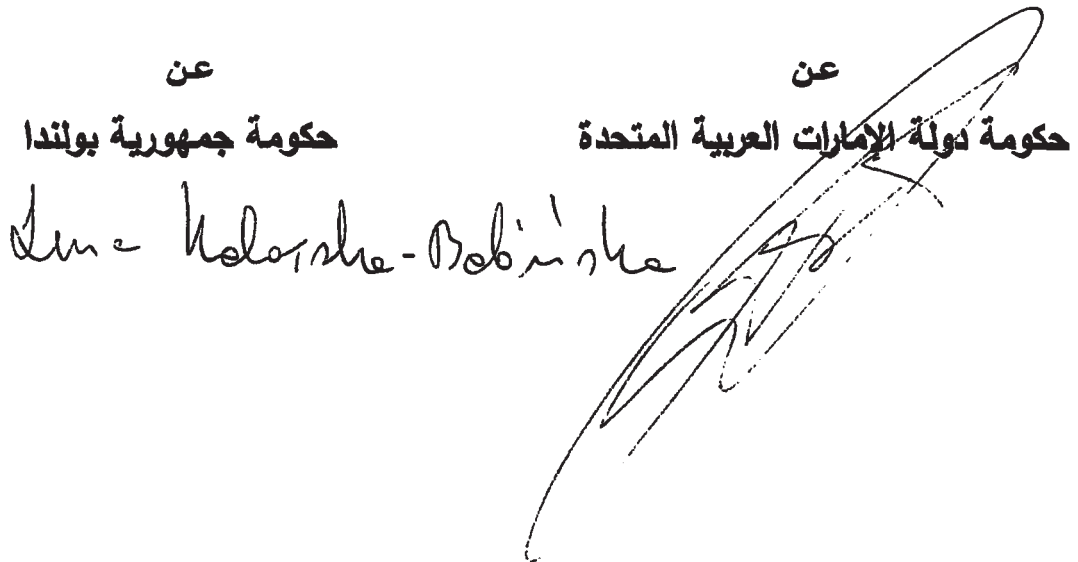 عن
حكومة دولة الإمارات العربية المتحدة
عن
حكومة جمهورية بولندا
Lena Kolarska-Bobińska